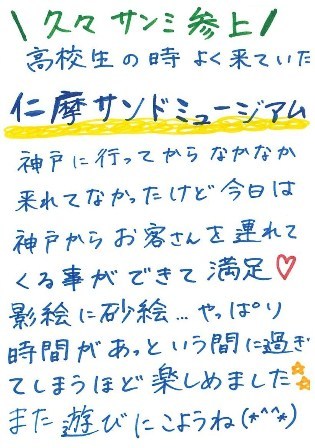 \ 久々 サンミ 参上 /
高校生の時よく来ていた
仁摩サンドミュージアム
神戸に行ってからなかなか
来れてなかったけど今日は
神戸からお客さんを連れて
くる事ができて満足♡
影絵に砂絵…やっぱり
時間があっという間に過ぎ
てしまうほど楽しめました☆☆
また遊びにこようね(*^^*)